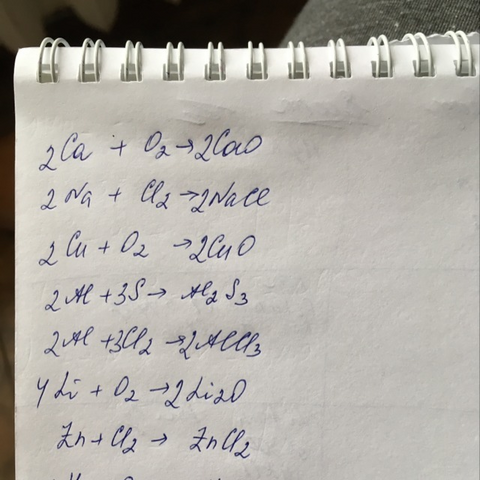 2Ca + O₂ → 2CaO
2Na + Cl₂ → 2NaCl
2Cu + O₂ → 2CuO
2Al + 3S → Al₂S₃
2Al + 3Cl₂ → 2AlCl₃
4Li + O₂ → 2Li₂O
Zn + Cl₂ → ZnCl₂